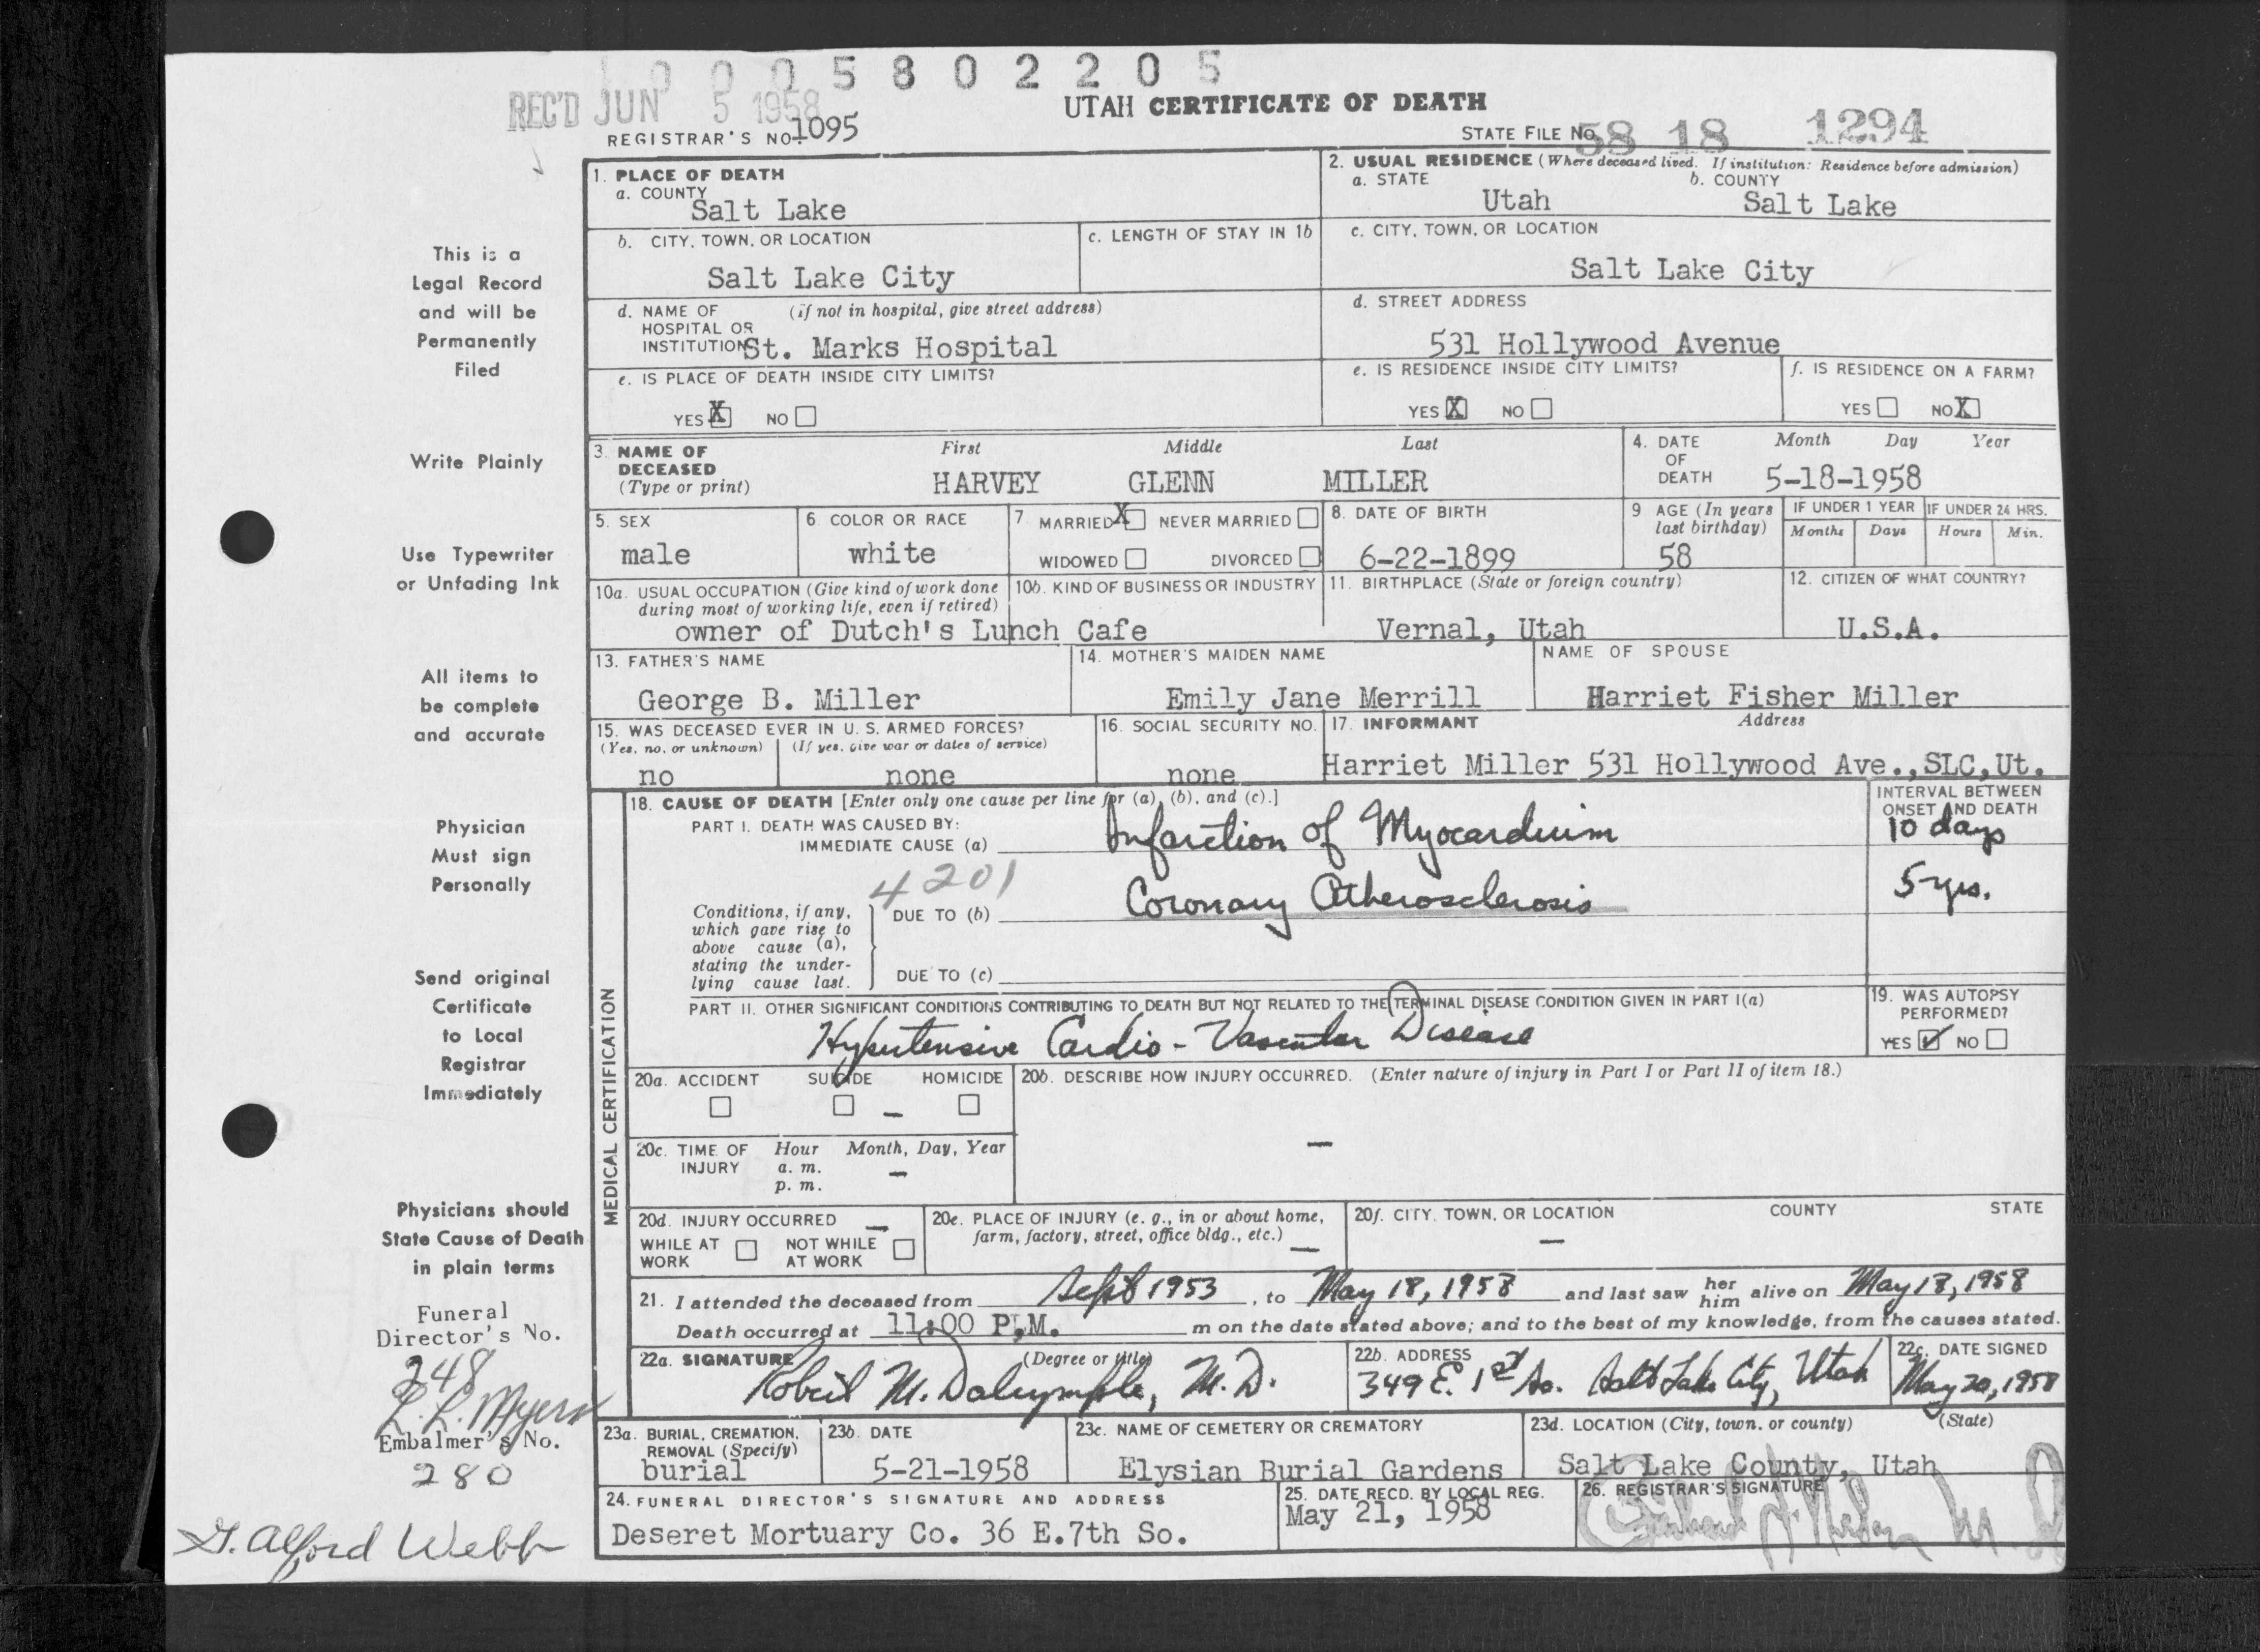 0 0 0 5 8 0 2 2 0 5
REC'D JUN 5 1958
UTAH CERTIFICATE OF DEATH
REGISTRAR'S NO. 1095
STATE FILE NO. 58 18 1294
This is a
Legal Record
and will be
Permanently
Filed
Write Plainly
Use Typewriter
or Unfading Ink
All items to
be complete
and accurate
Physician
Must sign
Personally
Send original
Certificate
to Local
Registrar
Immediately
Physicians should
State Cause of Death
in plain terms
Funeral
Director's No.
248
L. L. Myers
Embalmer's No.
280
G. Alford Webb
1. PLACE OF DEATH
a. COUNTY
Salt Lake
2. USUAL RESIDENCE (Where deceased lived. If institution: Residence before admission)
a. STATE b. COUNTY
Utah Salt Lake
b. CITY, TOWN, OR LOCATION
Salt Lake City
c. LENGTH OF STAY IN 1b
c. CITY, TOWN, OR LOCATION
Salt Lake City
d. NAME OF (if not in hospital, give street address)
HOSPITAL OR
INSTITUTION St. Marks Hospital
d. STREET ADDRESS
531 Hollywood Avenue
e. IS PLACE OF DEATH INSIDE CITY LIMITS?
YES X NO
e. IS RESIDENCE INSIDE CITY LIMITS?
YES X NO
f. IS RESIDENCE ON A FARM?
YES NO X
3. NAME OF
DECEASED
(Type or print)
First Middle Last
HARVEY GLENN MILLER
4. DATE
OF
DEATH
Month Day Year
5-18-1958
5. SEX
male
6. COLOR OR RACE
white
7 MARRIED X NEVER MARRIED
WIDOWED DIVORCED
8. DATE OF BIRTH
6-22-1899
9 AGE (In years
last birthday)
58
IF UNDER 1 YEAR
Months Days
IF UNDER 24 HRS.
Hours Min.
10a. USUAL OCCUPATION (Give kind of work done
during most of working life, even if retired)
10b. KIND OF BUSINESS OR INDUSTRY
owner of Dutch's Lunch Cafe
11. BIRTHPLACE (State or foreign country)
Vernal, Utah
12. CITIZEN OF WHAT COUNTRY?
U.S.A.
13. FATHER'S NAME
George B. Miller
14. MOTHER'S MAIDEN NAME
Emily Jane Merrill
NAME OF SPOUSE
Harriet Fisher Miller
15. WAS DECEASED EVER IN U. S. ARMED FORCES?
(Yes, no, or unknown) (If yes, give war or dates of service)
no none
16. SOCIAL SECURITY NO.
none
17. INFORMANT Address
Harriet Miller 531 Hollywood Ave.,SLC,Ut.
MEDICAL CERTIFICATION
18. CAUSE OF DEATH [Enter only one cause per line for (a), (b), and (c).]
INTERVAL BETWEEN
ONSET AND DEATH
PART I. DEATH WAS CAUSED BY:
IMMEDIATE CAUSE (a) Infarction of Myocardium 10 days
4201
Conditions, if any,
which gave rise to
above cause (a),
stating the under-
lying cause last.
DUE TO (b) Coronary Atherosclerosis 5 yrs.
DUE TO (c)
PART II. OTHER SIGNIFICANT CONDITIONS CONTRIBUTING TO DEATH BUT NOT RELATED TO THE TERMINAL DISEASE CONDITION GIVEN IN PART I(a)
Hypertensive Cardio-Vascular Disease
19. WAS AUTOPSY
PERFORMED?
YES ✓ NO
20a. ACCIDENT SUICIDE HOMICIDE
–
20b. DESCRIBE HOW INJURY OCCURRED. (Enter nature of injury in Part I or Part II of item 18.)
–
20c. TIME OF Hour Month, Day, Year
INJURY a. m. –
p. m.
20d. INJURY OCCURRED –
WHILE AT NOT WHILE
WORK AT WORK
20e. PLACE OF INJURY (e. g., in or about home,
farm, factory, street, office bldg., etc.) –
20f. CITY, TOWN, OR LOCATION COUNTY STATE
–
21. I attended the deceased from Sept 1953, to May 18, 1958 and last saw her him alive on May 18, 1958
Death occurred at 11:00 P.M. m on the date stated above; and to the best of my knowledge, from the causes stated.
22a. SIGNATURE (Degree or title)
Robert M. Dalrymple, M.D.
22b. ADDRESS
349 E. 1st So. Salt Lake City, Utah
22c. DATE SIGNED
May 20, 1958
23a. BURIAL, CREMATION,
REMOVAL (Specify)
burial
23b. DATE
5-21-1958
23c. NAME OF CEMETERY OR CREMATORY
Elysian Burial Gardens
23d. LOCATION (City, town, or county) (State)
Salt Lake County, Utah
24. FUNERAL DIRECTOR'S SIGNATURE AND ADDRESS
Deseret Mortuary Co. 36 E.7th So.
25. DATE RECD. BY LOCAL REG.
May 21, 1958
26. REGISTRAR'S SIGNATURE